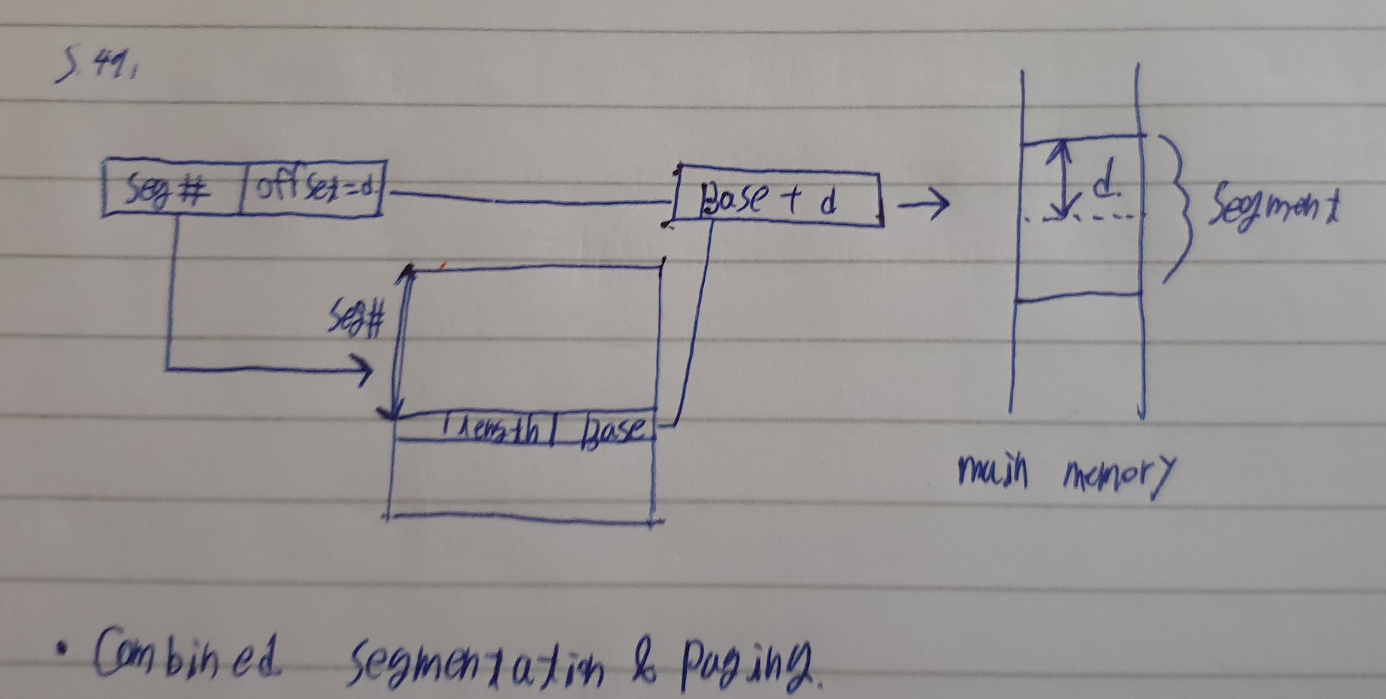 S.49.
Seg# offset=d Base + d
d.
Segment
Seg#
length Base
main memory
• Combined segmentatin & paging.